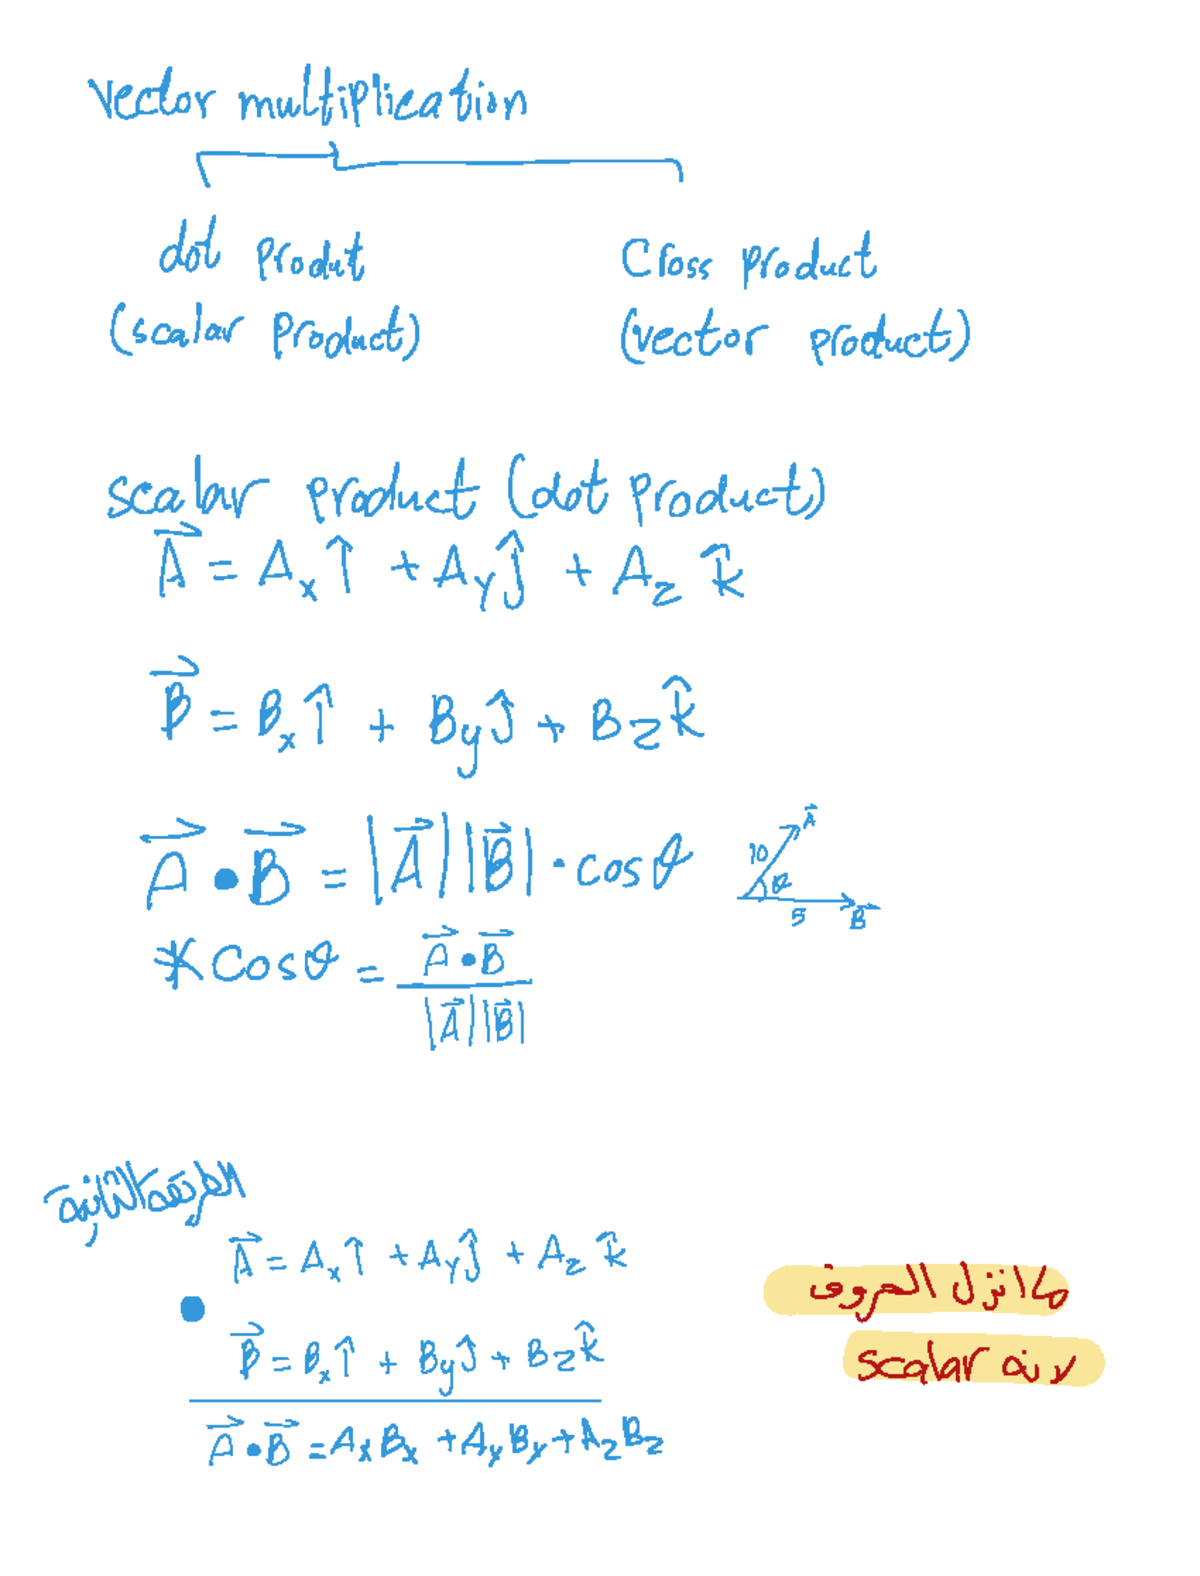 vector multiplication
dot produt
(scalar Product)
Cross product
(vector product)
scalar product (dot product)
A⃗ = Aₓ î + Aᵧ ĵ + A_z k̂
B⃗ = Bₓ î + By ĵ + B_z k̂
A⃗ • B⃗ = |A⃗| |B⃗| · cos θ
A⃗
10
θ
5
B⃗
* Cos θ = A⃗ • B⃗ / |A⃗| |B⃗|
الطريقة الثانية
A⃗ = Aₓ î + Aᵧ ĵ + A_z k̂
•
B⃗ = Bₓ î + By ĵ + B_z k̂
A⃗ • B⃗ = AₓBₓ + AᵧBᵧ + A_zB_z
ما انزل الحروف
لانه scalar